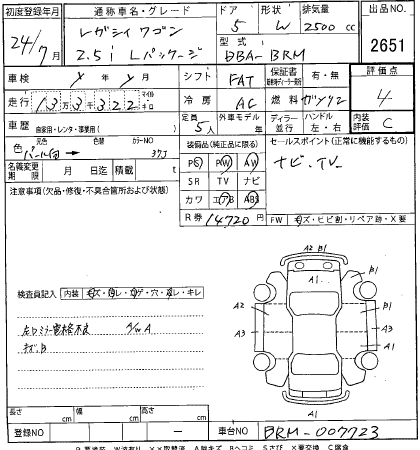 初度登録年月 通称車名・グレード ドア 形状 排気量 出品NO.
24/7月 レガシィワゴン 2.5i Lパッケージ 5 W 2500cc 2651
型式 DBA-BRM
車検 × 年 × 月 シフト FAT 保証書 有・無 評価点 4
走行 13万3千322 冷房 AC 燃料 ガソリン
車歴 自家用・レンタ・事業用( ) 定員 5人 外車モデル 年 ディーラー 並行 ハンドル 左・右 内装評価 C
色 元色 パール白 → カラーNO 37J 装備品(純正品に限る) セールスポイント(正常に機能するもの)
PS PW AW ナビ、TV
名義変更 月 日迄 積載 t SR TV ナビ
注意事項(欠品・修復・不具合箇所および状態) カワ エアB ABS
R券 14720円 FW キズ・ヒビ割・リペア跡・X要
A2 B1
A1 B1
A2 A1
A3 A3
A2
A1
A1
検査員記入 内装 キズ・汚レ・コゲ・穴・ヌレ・キレ
左ロミラー電格不良
キズ、B
長さ cm 幅 cm 高さ cm
登録NO ー 車台NO BRM-007723